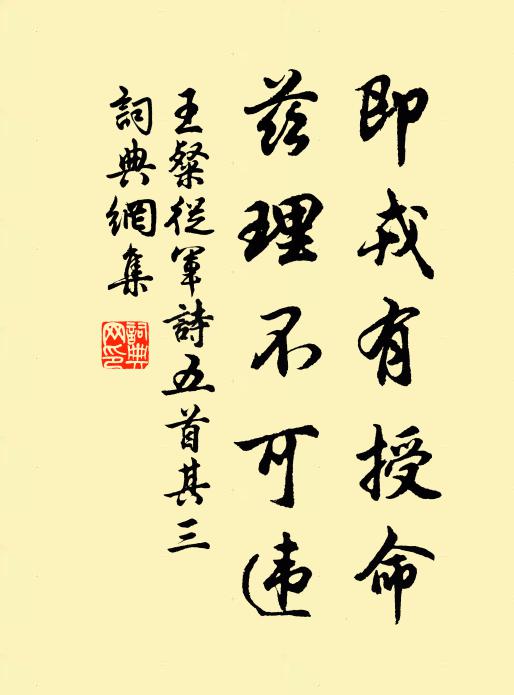 即戎有授命
茲理不可違
王粲從軍詩五首其三
詞典網集
詞典
网印